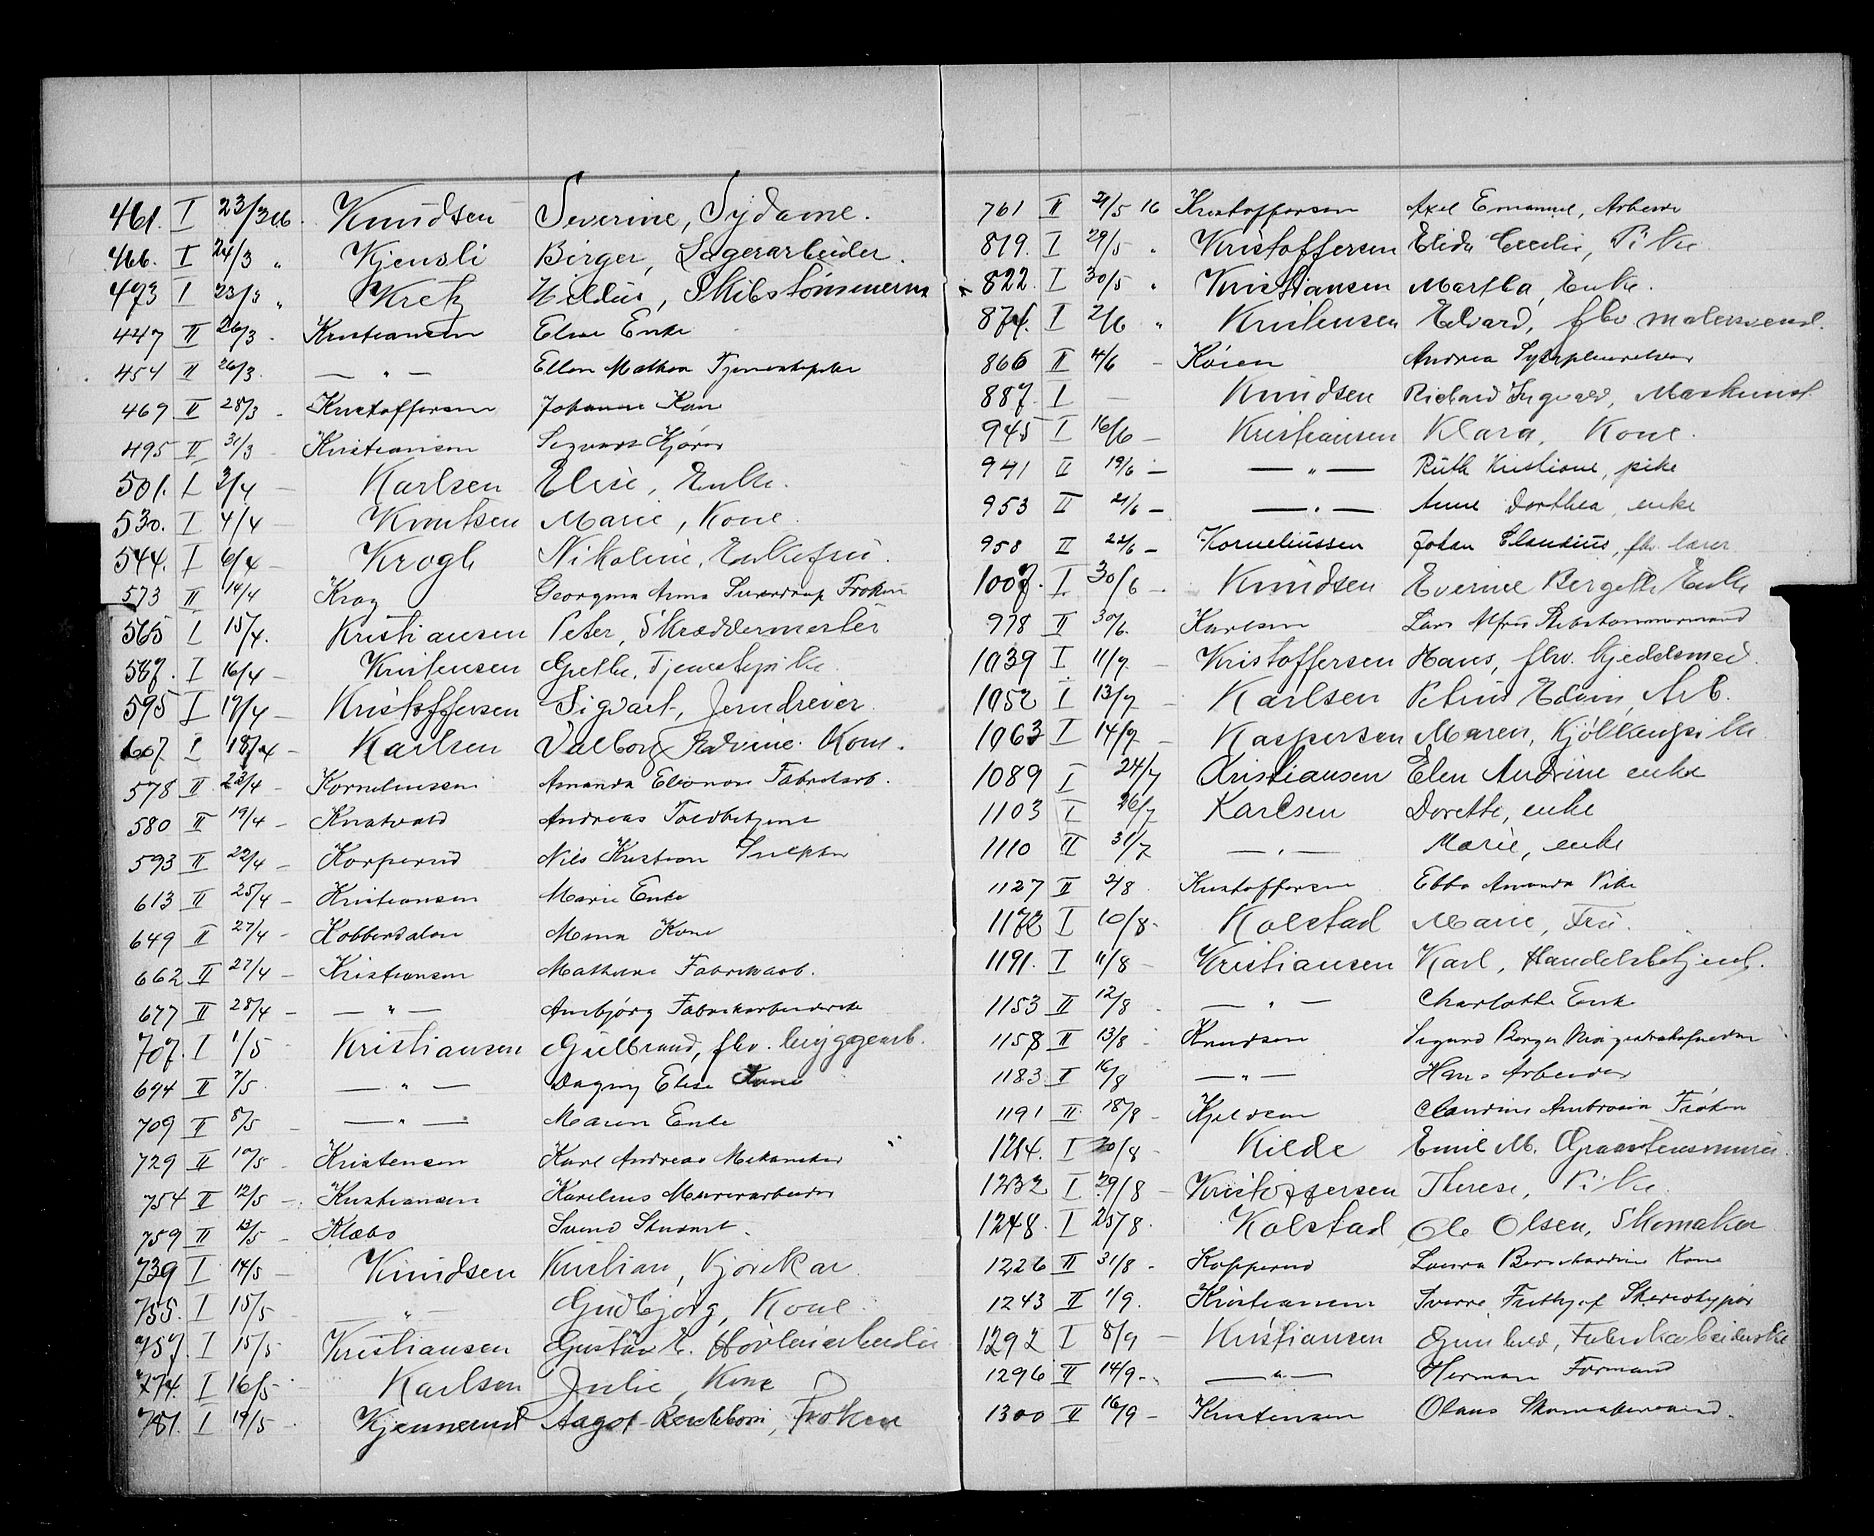 461. I 23/3 16. Knudsen Severine, Sydame.
466. I 24/3 " Kjensli Birger, Lagerarbeider.
473 I 23/3 " Kretz Hildur,
447 II 26/3 - Kristiansen Elise Enke
454 II 26/3. — " — Ellen Mathea Tjenestepike
469 II 28/3 - Kristoffersen Johanne Kone
495 II 31/3 - Kristiansen Sigvart Kjører
501. I 3/4 — Karlsen Elise, Enke.
530. I 4/4 — Knutsen Marie, Kone.
544. I 6/4 — Krogh Nikoline, Enkefru.
573 II 14/4 Krag Georgina Anna Sverdrup Frøken
565 I 15/4. Kristiansen Peter, Skræddermester
587. I 16/4 — Kristensen Grethe, Tjenestepike
595 I 17/4 — Kristoffersen Sigvart, Jerndreier.
607. I 18/4 — Karlsen Valborg Edvine. Kone.
578 II 23/4 - Korneliussen Amanda Eleonora Fabrikarb.
580 II 19/4 - Knatvold Andreas Toldbetjent
593 II 22/4 - Korperud Nils Kristian
613 II 25/4 - Kristiansen Marie Enke
649 II 27/4 - Kobberdalen Mina Kone
662 II 27/4 — Kristiansen Mathine Fabrikarb.
677 II 28/4 — — " — Ambjørg Fabrikarbeiderske
707. I 1/5 Kristiansen Gulbrand, fhv. bryggearb.
694 II 7/5. — " — Dagny Elise Kone
709 II 8/5 — " — Maren Enke
729 II 10/5 - Kristensen Karl Andreas Mekaniker "
754 II 12/5 - Kristiansen Karelius Murerarbeider
759 II 13/5 - Klæbo Svend
739 I 14/5 — Knudsen Kristian, Kjørekar
755. I 15/5 — " — Gudbjørg, Kone
757. I 15/5 - Kristiansen Gustav E. Høvleriarbeider
774. I 16/5 Karlsen Julie, Kone
781. I 19/5 - Kjennerud Aagot Frøken
761 II 21/5 16 Kristoffersen Axel Emanuel, Arbeider
819. I 29/5 " Kristoffersen Elida Cecilie, Pike
822. I 30/5 " Kristiansen Martha, Enke.
874. I 2/6 " Kristensen Edvard, fhv malersvend.
866 II 4/6 - Køien Andrea
887. I — Knudsen Richard Ingvald, Maskinist.
945 I 16/6 — Kristiansen Klara, Kone.
941 II 19/6 — — " — Ruth Kristiane, pike
953 II 21/6 — — " — Anne Dorthea, enke
958 II 22/6 — Korneliussen Johan Claudius, fhv. lærer
1007. I 30/6 -. Knudsen Everine Bergette Enke
978 II 30/6. Karlsen Lars Alfred Skibstømmermand
1039 I 11/7. — Kristoffersen Hans, fhv. kjedelsmed.
1052 I 13/7 — Karlsen Petrus Edvin, Arb.
1063 I 14/7 — Kaspersen Maren, Kjøkkenpike
1089 I 24/7 Kristiansen Elen Andrine enke
1103 I 26/7 Karlsen Dorette, enke
1110 II 31/7 — " — Marie, enke
1127 II 2/8 Kristoffersen Ebba Amanda Pike
1172 I 10/8 - Kolstad Marie, Fru.
1191. I 11/8 — Kristiansen Karl, Handelsbetjent.
1153 II 12/8 — " — Charlotte Enke
1158 II 13/8 - Knudsen Sigurd Borger
1183 I 16/8 — " — Hans Arbeider
1191 II 18/8 - Kjeldsen Claudine Ambrosia Frøken
1214. I 20/8 - Kilde Emil M.
1232 I 29/8 — Kristoffersen Therese, Pike
1248. I 25/8. Kolstad Ole Olsen, Skomaker
1226 II 31/8 - Kopperud Laura Bernhardine Kone
1243 II 1/9. Kristiansen Sverre Frithjof Stereotypør
1292 I 8/9 — Kristiansen Gunhild, Fabrikarbeiderske
1296 II 14/9 - — " — Herman Formand
1300 II 16/9 — Kristensen Olaus Skomakersvend.